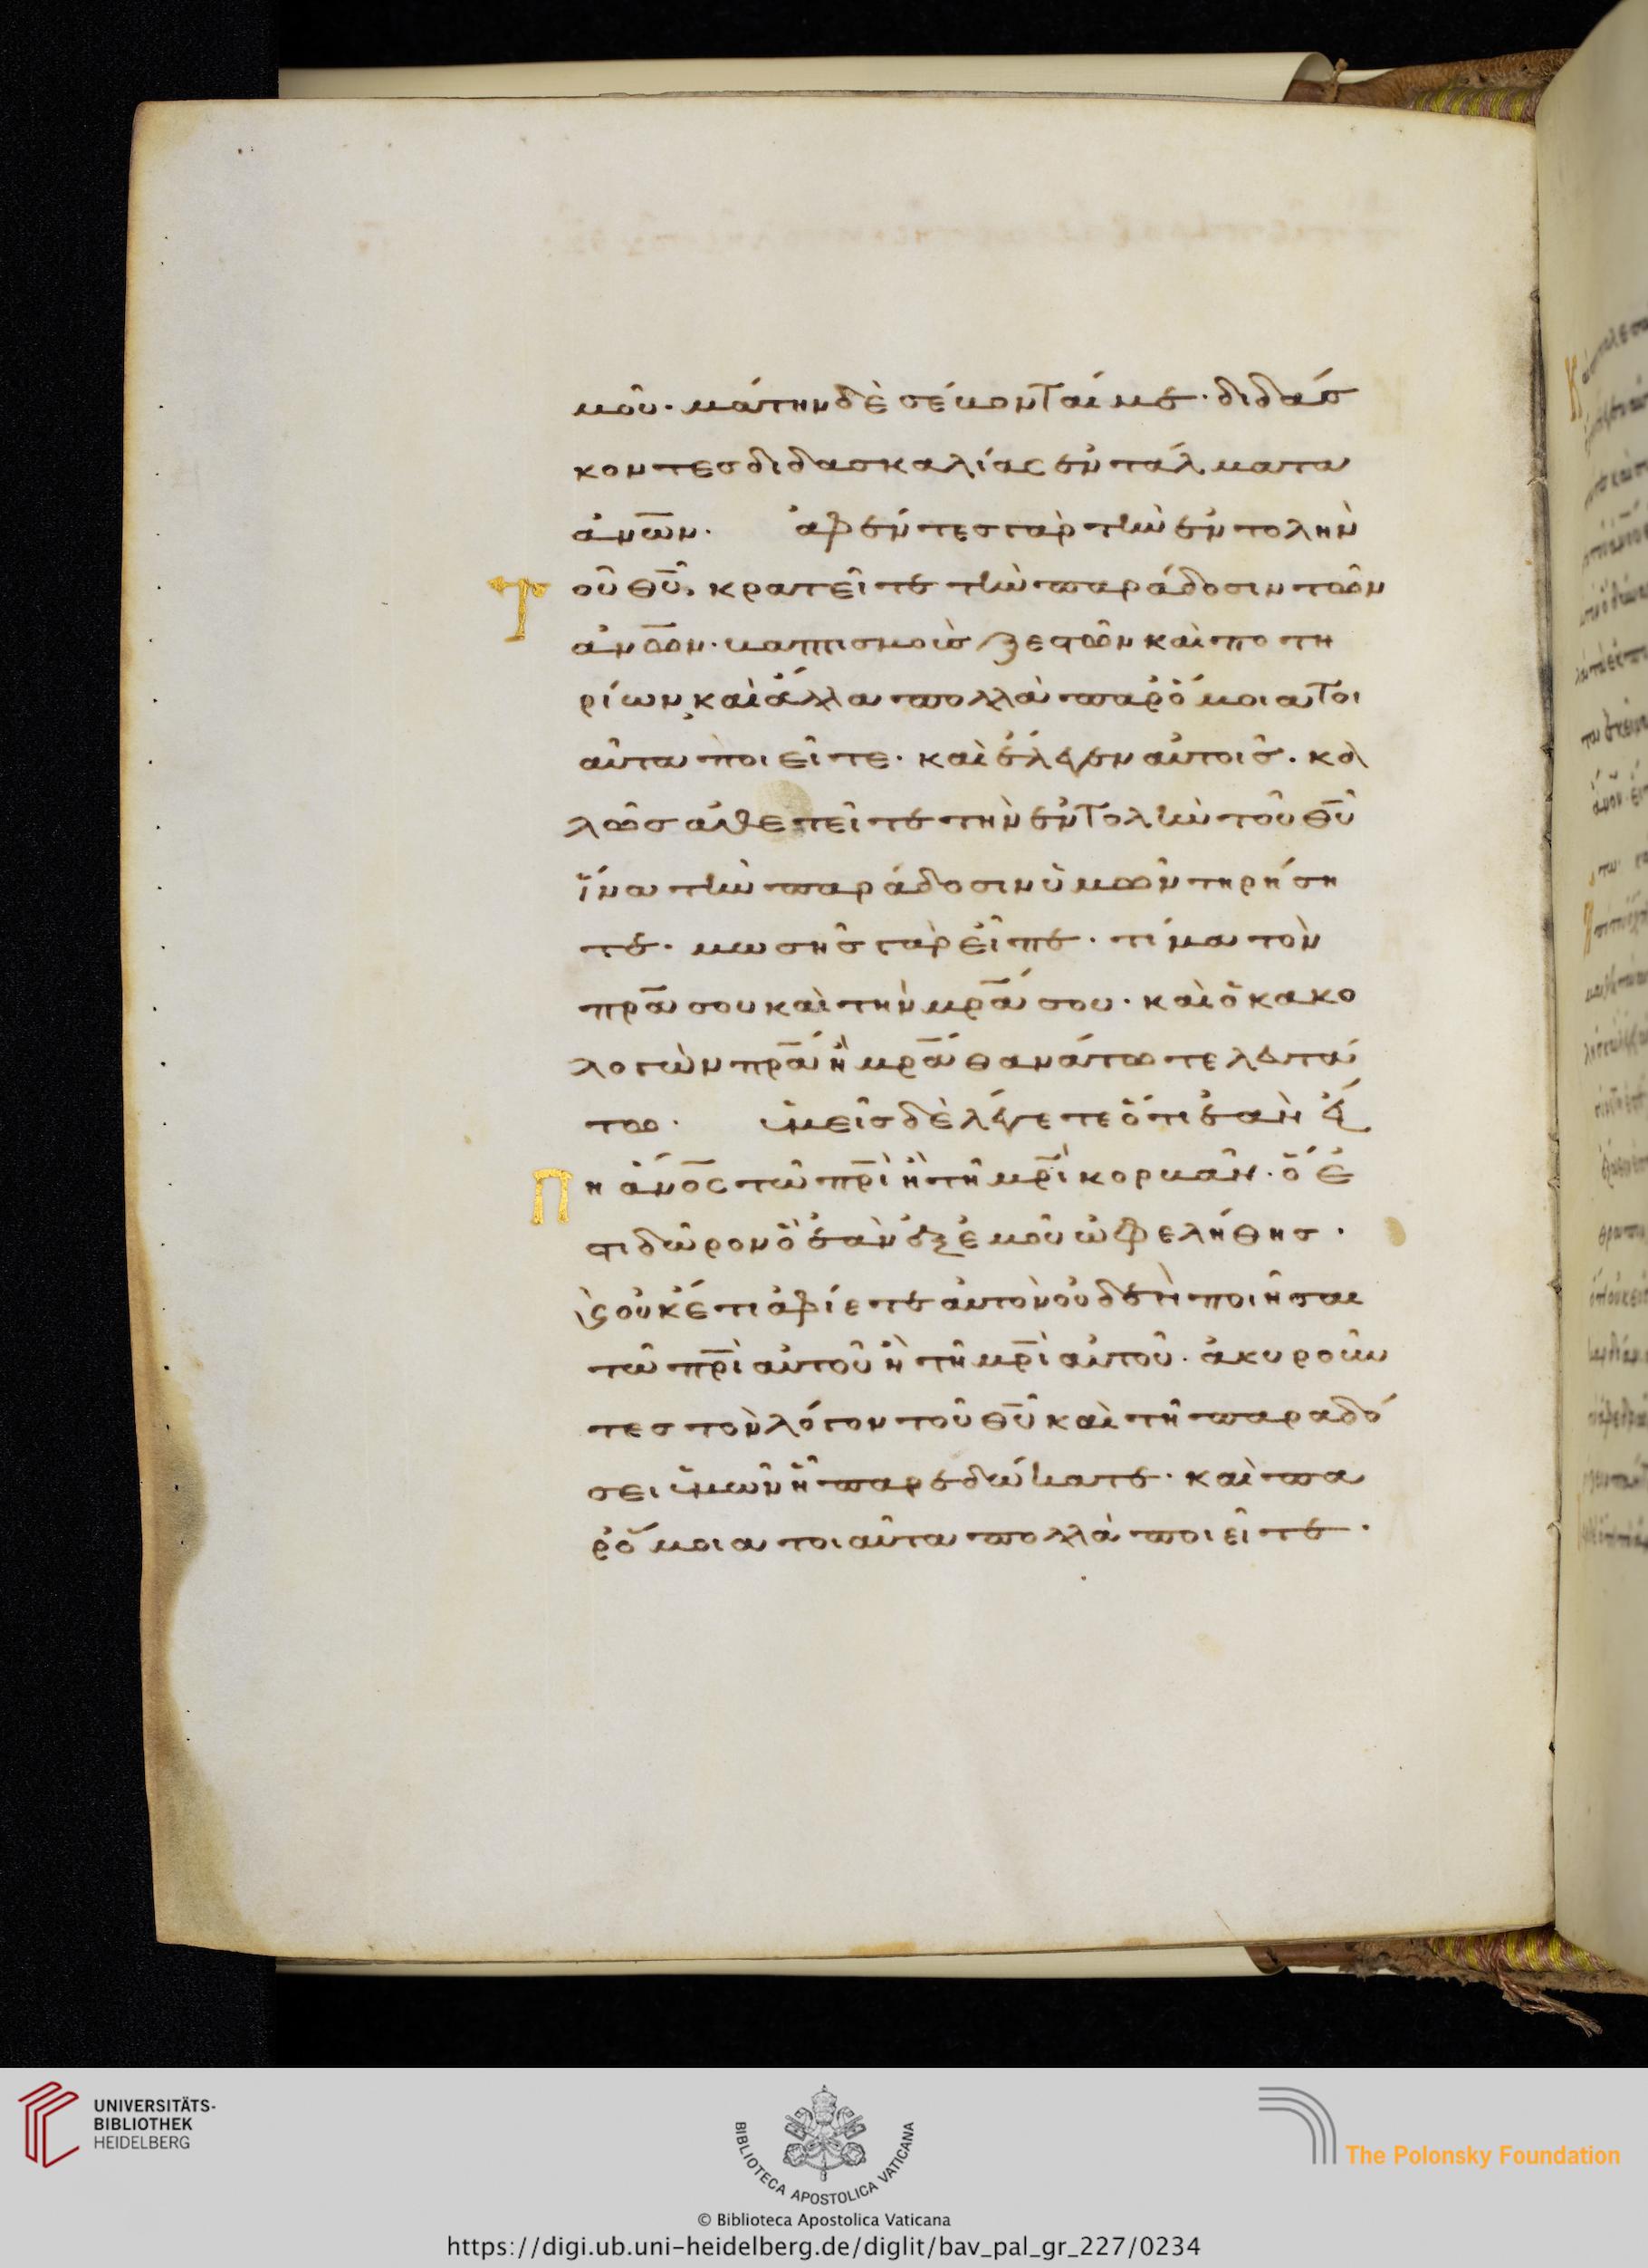 μοῦ· μάτην δὲ σέβονται με· διδάσ
κοντες διδασκαλίας ἐντάλματα
ἀν̅ων· ἀφέντες γὰρ τὴν ἐντολὴν
τοῦ θ̅υ, κρατεῖτε τὴν παράδοσιν τῶν
ἀν̅ων· βαπτισμοὺς ξεστῶν καὶ ποτη
ρίων, καὶ ἄλλα πολλὰ παρόμοια τοι
αῦτα ποιεῖτε· καὶ ἔλεγεν αὐτοῖς· κα
λῶς ἀθετεῖτε τὴν ἐντολὴν τοῦ θ̅υ
ἵνα τὴν παράδοσιν ὑμῶν τηρήση
τε· μωσῆς γὰρ εἶπε· τίμα τὸν
π̅ρα σου καὶ τὴν μ̅ρα σου· καὶ ὁ κακο
λογῶν π̅ρα ἢ μ̅ρα θανάτω τελευτά
τω· ὑμεῖς δὲ λέγετε ὅτι ἐὰν εἴ
Πη ἄν̅ος τῶ π̅ρι ἢ τῆ μ̅ρι κορβᾶν· ὅ ἐ
στι δῶρον ὃ ἐὰν ἐξ ἐμοῦ ὠφελήθης·
καὶ οὐκέτι ἀφίετε αὐτὸν οὐδὲν ποιῆσαι
τῶ π̅ρι αὐτοῦ ἢ τῆ μ̅ρι αὐτοῦ· ἀκυροῦν
τες τὸν λόγον τοῦ θ̅υ καὶ τῆ παραδό
σει ὑμῶν ἧ παρεδώκατε· καὶ πα
ρόμοια τοιαῦτα πολλὰ ποιεῖτε·
UNIVERSITÄTS-
BIBLIOTHEK
HEIDELBERG
BIBLIOTECA APOSTOLICA VATICANA
The Polonsky Foundation
© Biblioteca Apostolica Vaticana
https://digi.ub.uni-heidelberg.de/diglit/bav_pal_gr_227/0234